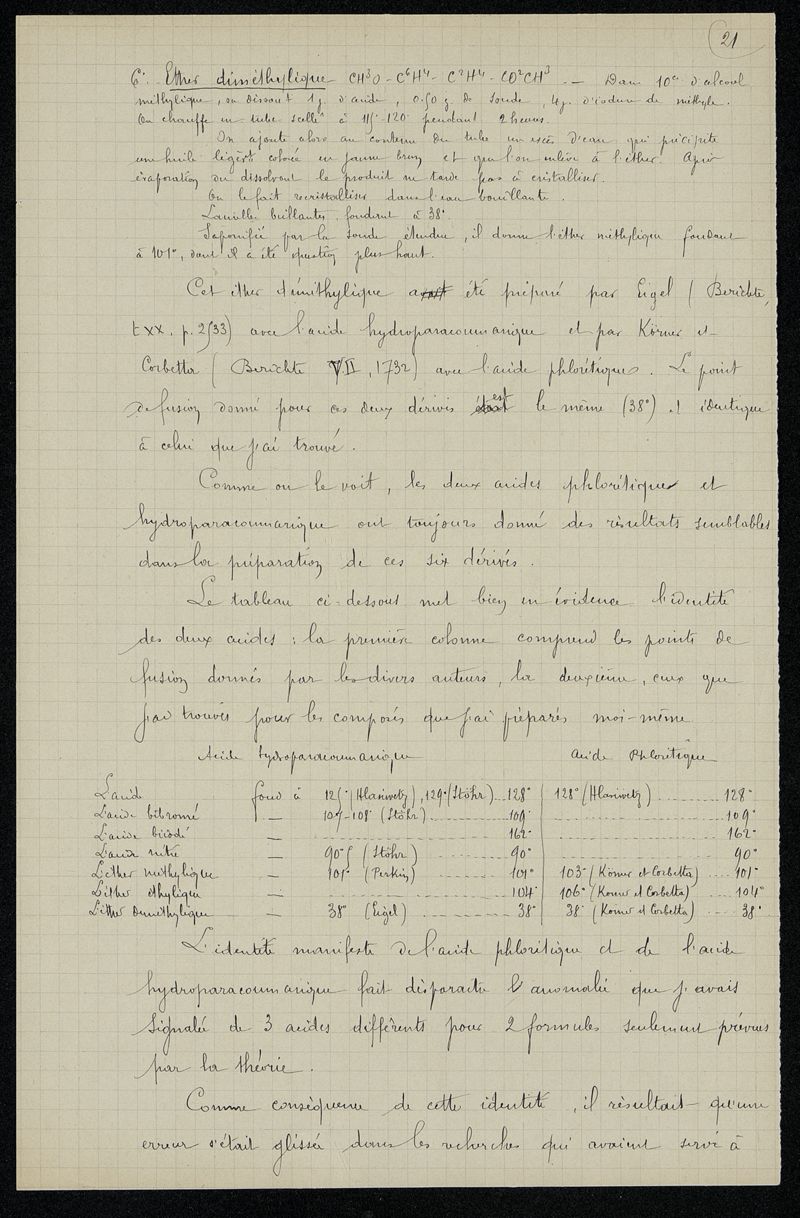 21
6° Ether diméthylique CH³O - C⁶H⁴ - C²H⁴ - CO²CH³ — Dans 10cc d'alcool
méthylique, on dissout 1g. d'acide, 0.50 g. de soude, 4g. d'iodure de méthyle.
On chauffe en tube scellé à 115°-120° pendant 2 heures.
On ajoute alors au contenu du tube un excès d'eau qui précipite
une huile légèrt colorée en jaune brun et que l'on enlève à l'éther. Après
évaporation du dissolvant le produit ne tarde pas à cristalliser.
On le fait recristalliser dans l'eau bouillante.
Lamelles brillantes, fondant à 38°.
Saponifié par la soude étendue, il donne l'éther méthylique fondant
à 101°, dont il a été question plus haut.
Cet éther diméthylique a été préparé par Eigel (Berichte,
t XX. p. 2533) avec l'acide hydroparacoumarique et par Körner et
Corbetta (Berichte VII, 1732) avec l'acide phlorétique. Le point
de fusion donné pour ces deux dérivés est le même (38°) et identique
à celui que j'ai trouvé.
Comme on le voit, les deux acides phlorétique et
hydroparacoumarique ont toujours donné des résultats semblables
dans la préparation de ces six dérivés.
Le tableau ci-dessous met bien en évidence l'identité
des deux acides : la première colonne comprend les points de
fusion donnés par les divers auteurs, la deuxième, ceux que
j'ai trouvés pour les composés que j'ai préparés moi-même
Acide hydroparacoumarique Acide Phlorétique
L'acide fond à 125° (Hlasiwetz), 129° (Stöhr) ... 128° 128° (Hlasiwetz) ........ 128°
L'acide bibromé — 107-108° (Stöhr) ........ 109° ........ 109°
L'acide biiodé — ........ 162° ........ 162°
L'acide nitré — 90°5 (Stöhr) ........ 90° ........ 90°
L'éther méthylique — 101° (Perkin) ........ 101° 103° (Körner et Corbetta) .... 101°
L'éther éthylique — ........ 104° 106° (Korner et Corbetta) .... 104°
L'éther diméthylique — 38° (Eigel) ........ 38° 38° (Korner et Corbetta) .... 38°
L'identité manifeste de l'acide phlorétique et de l'acide
hydroparacoumarique fait disparaître l'anomalie que j'avais
signalée de 3 acides différents pour 2 formules seulement prévues
par la théorie.
Comme conséquence de cette identité, il résultait qu'une
erreur s'était glissée dans les recherches qui avaient servi à